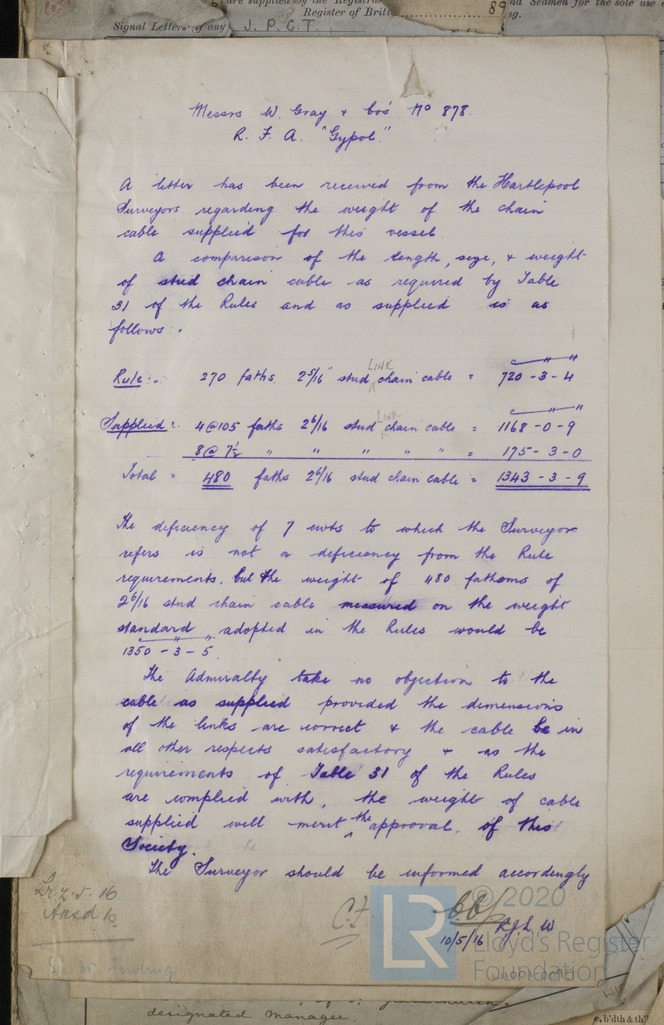 are supplied by the Registra
nd Seamen for the sole use o
Register of Brit
89
Signal Letters (if any) J. P. G. T.
Messrs W. Gray & Co's No 878
R. F. A. "Gypol"
A letter has been received from the Hartlepool
Surveyors regarding the weight of the chain
cable supplied for this vessel.
A comparison of the length, size, & weight
of stud chain cable as required by Table
31 of the Rules and as supplied is as
follows:.
LINK
Rule:. 270 faths. 2 5/16" stud chain cable = 720-3-4
LINK
Supplied: 4@105 faths 2 6/16 stud chain cable = 1168-0-9
8@ 7½ " " " " " = 175-3-0
Total = 480 faths 2 6/16 stud chain cable = 1343-3-9
The deficiency of 7 cwts to which the Surveyor
refers is not a deficiency from the Rule
requirements, but the weight of 480 fathoms of
2 6/16 stud chain cable measured on the weight
standard adopted in the Rules would be
1350-3-5
The Admiralty take no objection to the
cable as supplied provided the dimensions
of the links are correct & the cable be in
all other respects satisfactory & as the
requirements of Table 31 of the Rules
are complied with, the weight of cable
supplied will merit the approval of this
Society.
The Surveyor should be informed accordingly
10/5/16
© 2020
LR
Lloyd's Register
Foundation
designated manager.
e, b'dth & th